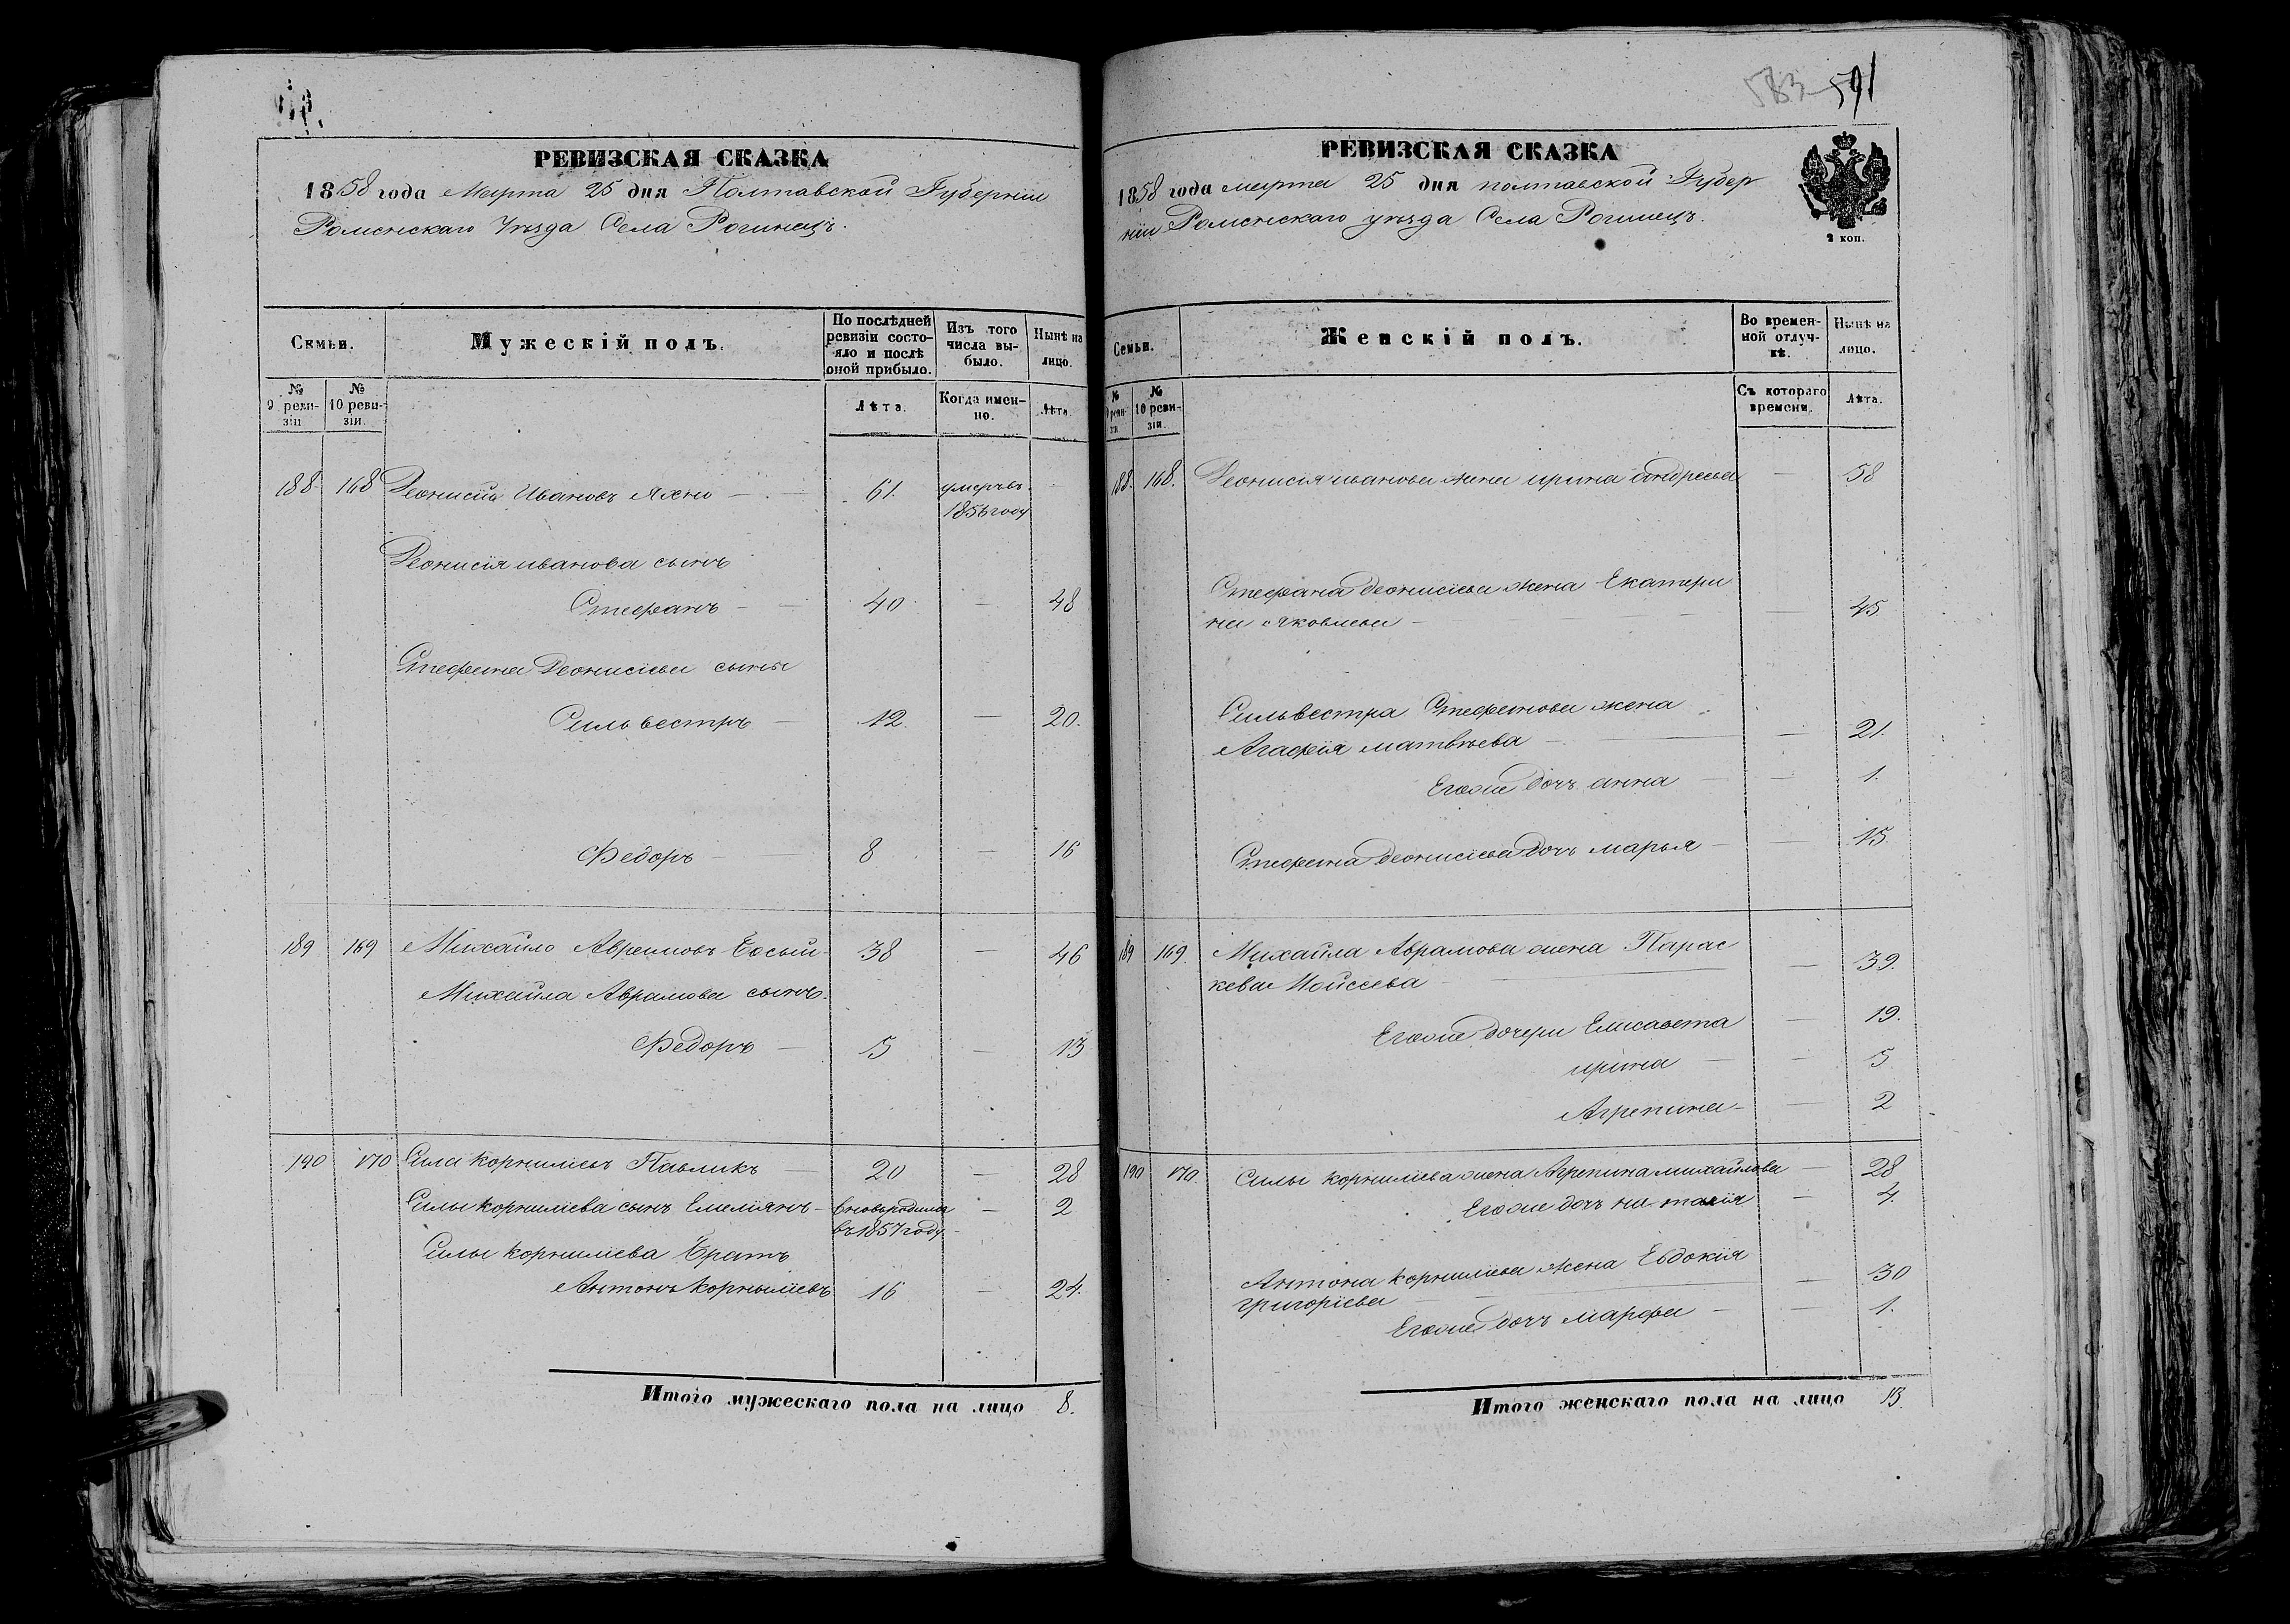 РЕВИЗСКАЯ СКАЗКА
1858 года Марта 25 дня Полтавской Губерніи
Роменскаго Уѣзда Села Рогинецъ.
Семьи.
Мужескій полъ.
По послѣдней ревизіи состояло и послѣ оной прибыло.
Изъ того числа выбыло.
Нынѣ на лицо.
№ 9 ревизіи
№ 10 ревизіи.
Лѣта.
Когда именно.
Лѣта.
188. 168 Деонисій Ивановъ Яхно 61. умеръ въ
1856 году
Деонисія иванова сынъ
Стефанъ 40 48
Стефана Деонисіева сынья
Сильвестръ 12. 20.
Федоръ 8 16
189 169 Михайло Аврамовъ Босый 38 46
Михайла Аврамова сынъ.
Федоръ 5 13
190 170 Сила Корниліевъ Павликъ 20 28
Силы Корниліева сынъ Емеліянъ вновьродился 2
въ 1857 году
Силы Корниліева Братъ
Антонъ Корниліевъ 16 24.
Итого мужескаго пола на лицо 8.
583 591
РЕВИЗСКАЯ СКАЗКА
1858 года марта 25 дня полтавской Губер
ніи Роменскаго уѣзда Села Рогинецъ.
2 коп.
Семьи.
Женскій полъ.
Во временной отлучкѣ.
Нынѣ на лицо.
№ 9 ревизіи
№ 10 ревизіи.
Съ котораго времени.
Лѣта.
188. 168. Деонисія иванова жена ирина андреева 58
Стефана Деонисіева жена Екатери
на Яковлева 45
Сильвестра Стефанова жена
Агафія матвѣева 21.
Егоже дочъ анна 1.
Стефана Деонисіева дочъ марья 15.
189 169 Михайла Аврамова жена Парас
кева Мойсеева 39.
Егоже дочери Елисавета 19.
ирина 5
Агрепина 2
190 170 Силы корниліева жена Агрепина михайлова 28
Егоже дочъ на талія 4
Антона корниліева жена Евдокія
григоріева 30
Егоже дочъ марфа 1.
Итого женскаго пола на лицо 13.